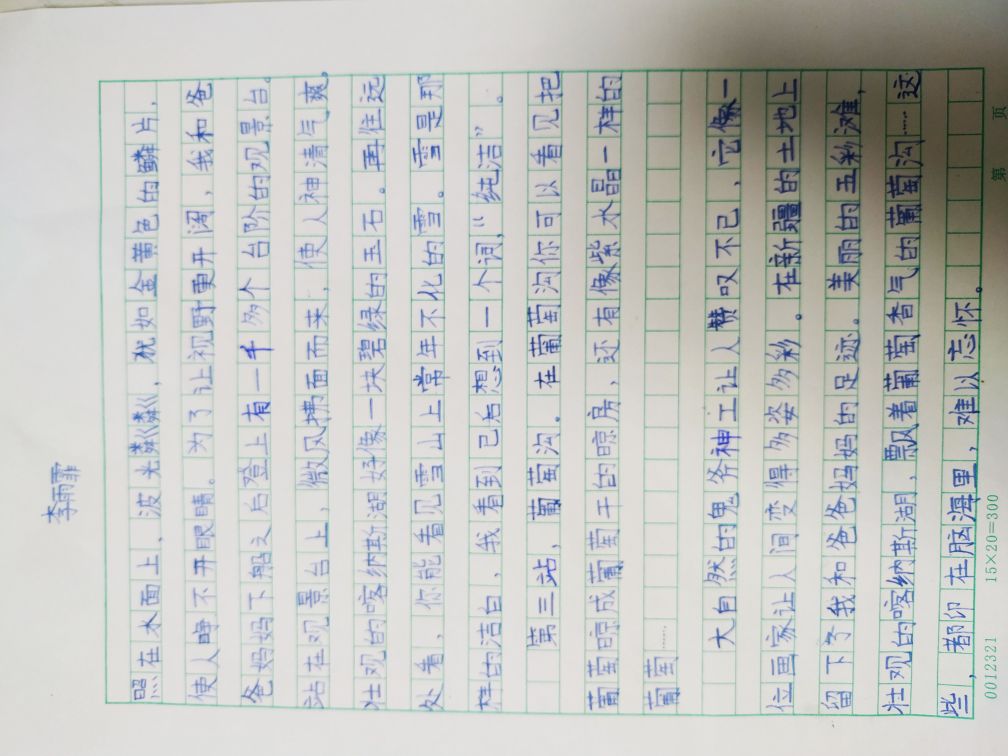 李雨霏
照在水面上，波光粼粼，犹如金黄色的鳞片，
使人睁不开眼睛。为了让视野更开阔，我和爸
爸妈妈下船之后登上有一千多个台阶的观景台。
站在观景台上，微风拂面而来，使人神清气爽，
壮观的喀纳斯湖好像一块碧绿的玉石。再往远
处看，你能看见雪山上常年不化的雪。雪是那
样的洁白，我看到已后想到一个词，“纯洁”。
第三站，葡萄沟。在葡萄沟你可以看见把
葡萄晾成葡萄干的晾房，还有像紫水晶一样的
葡萄……
大自然的鬼斧神工让人赞叹不已，它像一
位画家让人间变得多姿多彩。在新疆的土地上
留下了我和爸爸妈妈的足迹。美丽的五彩滩，
壮观的喀纳斯湖，飘着葡萄香气的葡萄沟……这
些，都印在脑海里，难以忘怀。
0012321 15×20=300 第 页